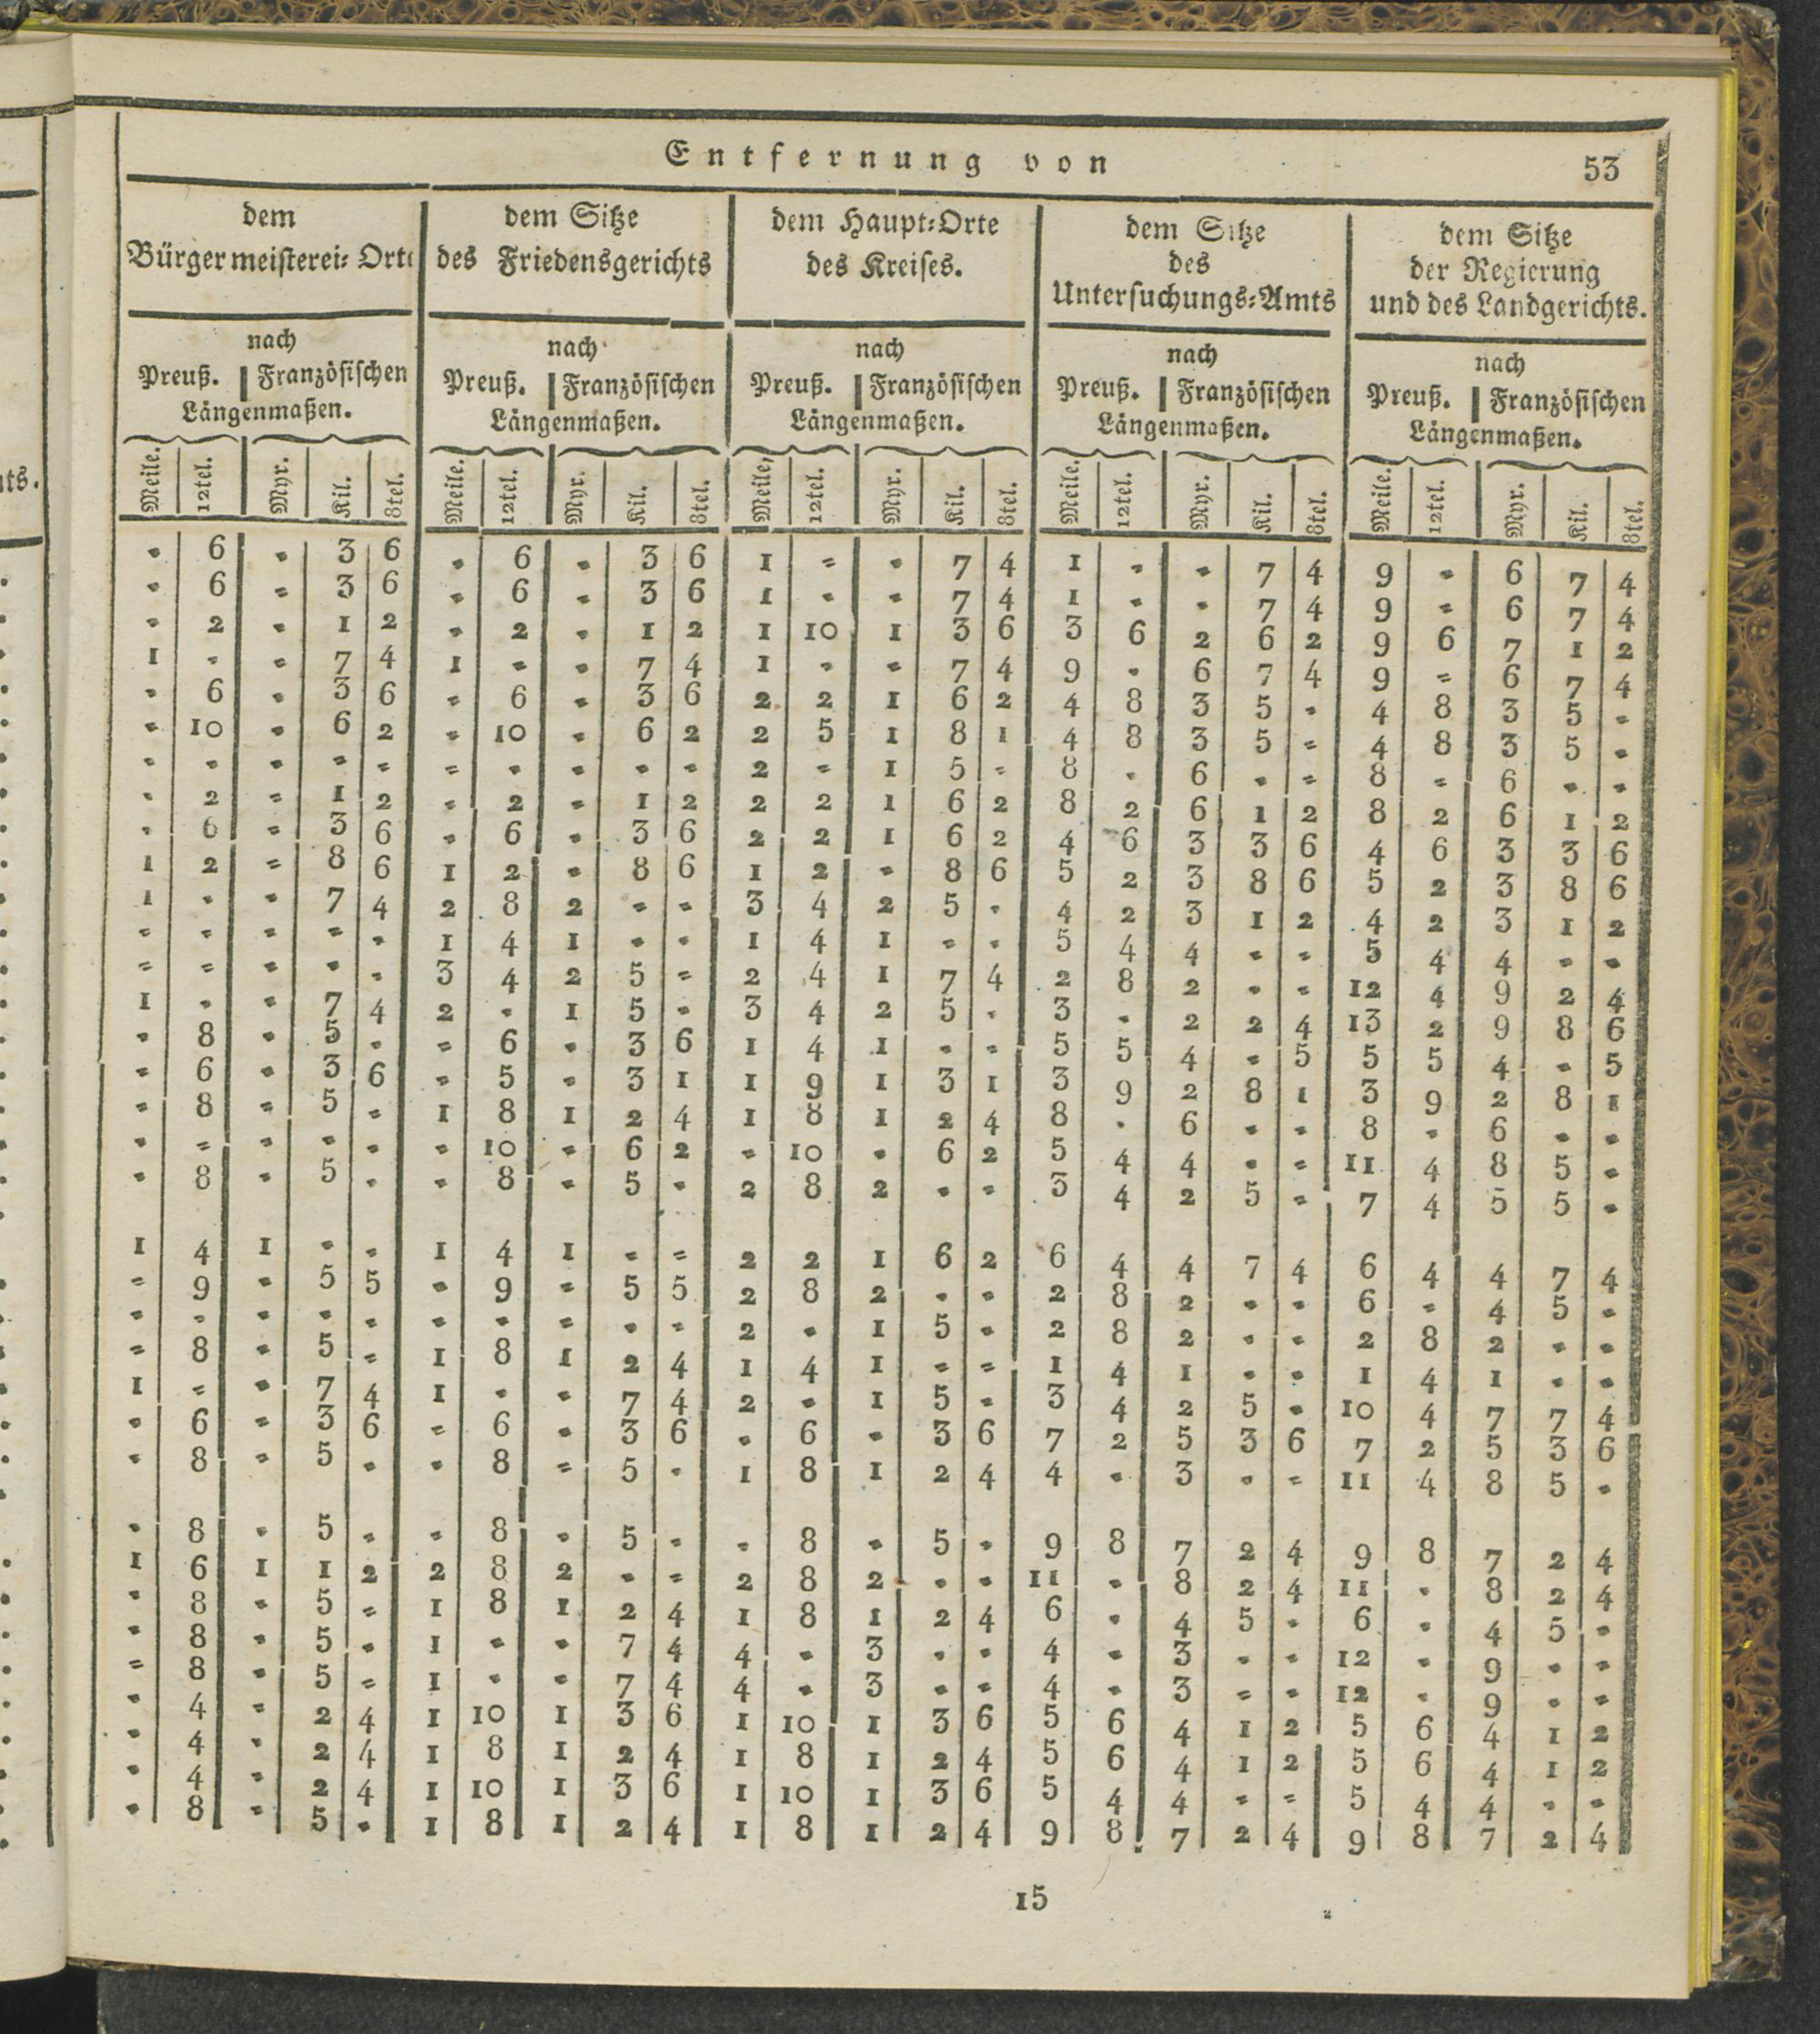 Entfernung von 53
dem
Bürgermeisterei=Orte
dem Sitze
des Friedensgerichts
dem Haupt=Orte
des Kreises.
dem Sitze
des
Untersuchungs=Amts
dem Sitze
der Regierung
und des Landgerichts.
nach
Preuß. Französischen
Längenmaßen.
nach
Preuß. Französischen
Längenmaßen.
nach
Preuß. Französischen
Längenmaßen.
nach
Preuß. Französischen
Längenmaßen.
nach
Preuß. Französischen
Längenmaßen.
Meile. 12tel. Myr. Kil. 8tel. Meile. 12tel. Myr. Kil. 8tel. Meile. 12tel. Myr. Kil. 8tel. Meile. 12tel. Myr. Kil. 8tel. Meile. 12tel. Myr. Kil. 8tel.
= 6 = 3 6 = 6 = 3 6 1 = = 7 4 1 = = 7 4 9 = 6 7 4
= 6 = 3 6 = 6 = 3 6 1 = = 7 4 1 = = 7 4 9 = 6 7 4
= 2 = 1 2 = 2 = 1 2 1 10 1 3 6 3 6 2 6 2 9 6 7 1 2
1 = = 7 4 1 = = 7 4 1 = = 7 4 9 = 6 7 4 9 = 6 7 4
= 6 = 3 6 = 6 = 3 6 2 2 1 6 2 4 8 3 5 = 4 8 3 5 =
= 10 = 6 2 = 10 = 6 2 2 5 1 8 1 4 8 3 5 = 4 8 3 5 =
= = = = = = = = = = 2 = 1 5 = 8 = 6 = = 8 = 6 = =
= 2 = 1 2 = 2 = 1 2 2 2 1 6 2 8 2 6 1 2 8 2 6 1 2
= 6 = 3 6 = 6 = 3 6 2 2 1 6 2 4 6 3 3 6 4 6 3 3 6
1 2 = 8 6 1 2 = 8 6 1 2 = 8 6 5 2 3 8 6 5 2 3 8 6
1 = = 7 4 2 8 2 = = 3 4 2 5 = 4 2 3 1 2 4 2 3 1 2
= = = = = 1 4 1 = = 1 4 1 = = 5 4 4 = = 5 4 4 = =
= = = = = 3 4 2 5 = 2 4 1 7 4 2 8 2 = = 12 4 9 2 4
1 = = 7 4 2 = 1 5 = 3 4 2 5 = 3 = 2 2 4 13 2 9 8 6
= 8 = 5 = = 6 = 3 6 1 4 1 = = 5 5 4 = 5 5 5 4 = 5
= 6 = 3 6 = 5 = 3 1 1 9 1 3 1 3 9 2 8 1 3 9 2 8 1
= 8 = 5 = 1 8 1 2 4 1 8 1 2 4 8 = 6 = = 8 = 6 = =
= = = = = = 10 = 6 2 = 10 = 6 2 5 4 4 = = 11 4 8 5 =
= 8 = 5 = = 8 = 5 = 2 8 2 = = 3 4 2 5 = 7 4 5 5 =
1 4 1 = = 1 4 1 = = 2 2 1 6 2 6 4 4 7 4 6 4 4 7 4
= 9 = 5 5 = 9 = 5 5 2 8 2 = = 2 8 2 = = 6 = 4 5 =
= = = = = = = = = = 2 = 1 5 = 2 8 2 = = 2 8 2 = =
= 8 = 5 = 1 8 1 2 4 1 4 1 = = 1 4 1 = = 1 4 1 = =
1 = = 7 4 1 = = 7 4 2 = 1 5 = 3 4 2 5 = 10 4 7 7 4
= 6 = 3 6 = 6 = 3 6 = 6 = 3 6 7 2 5 3 6 7 2 5 3 6
= 8 = 5 = = 8 = 5 = 1 8 1 2 4 4 = 3 = = 11 4 8 5 =
= 8 = 5 = = 8 = 5 = = 8 = 5 = 9 8 7 2 4 9 8 7 2 4
1 6 1 1 2 2 8 2 = = 2 8 2 = = 11 = 8 2 4 11 = 8 2 4
= 8 = 5 = 1 8 1 2 4 1 8 1 2 4 6 = 4 5 = 6 = 4 5 =
= 8 = 5 = 1 = = 7 4 4 = 3 = = 4 = 3 = = 12 = 9 = =
= 8 = 5 = 1 = = 7 4 4 = 3 = = 4 = 3 = = 12 = 9 = =
= 4 = 2 4 1 10 1 3 6 1 10 1 3 6 5 6 4 1 2 5 6 4 1 2
= 4 = 2 4 1 8 1 2 4 1 8 1 2 4 5 6 4 1 2 5 6 4 1 2
= 4 = 2 4 1 10 1 3 6 1 10 1 3 6 5 4 4 = = 5 4 4 = =
= 8 = 5 = 1 8 1 2 4 1 8 1 2 4 9 8 7 2 4 9 8 7 2 4
15